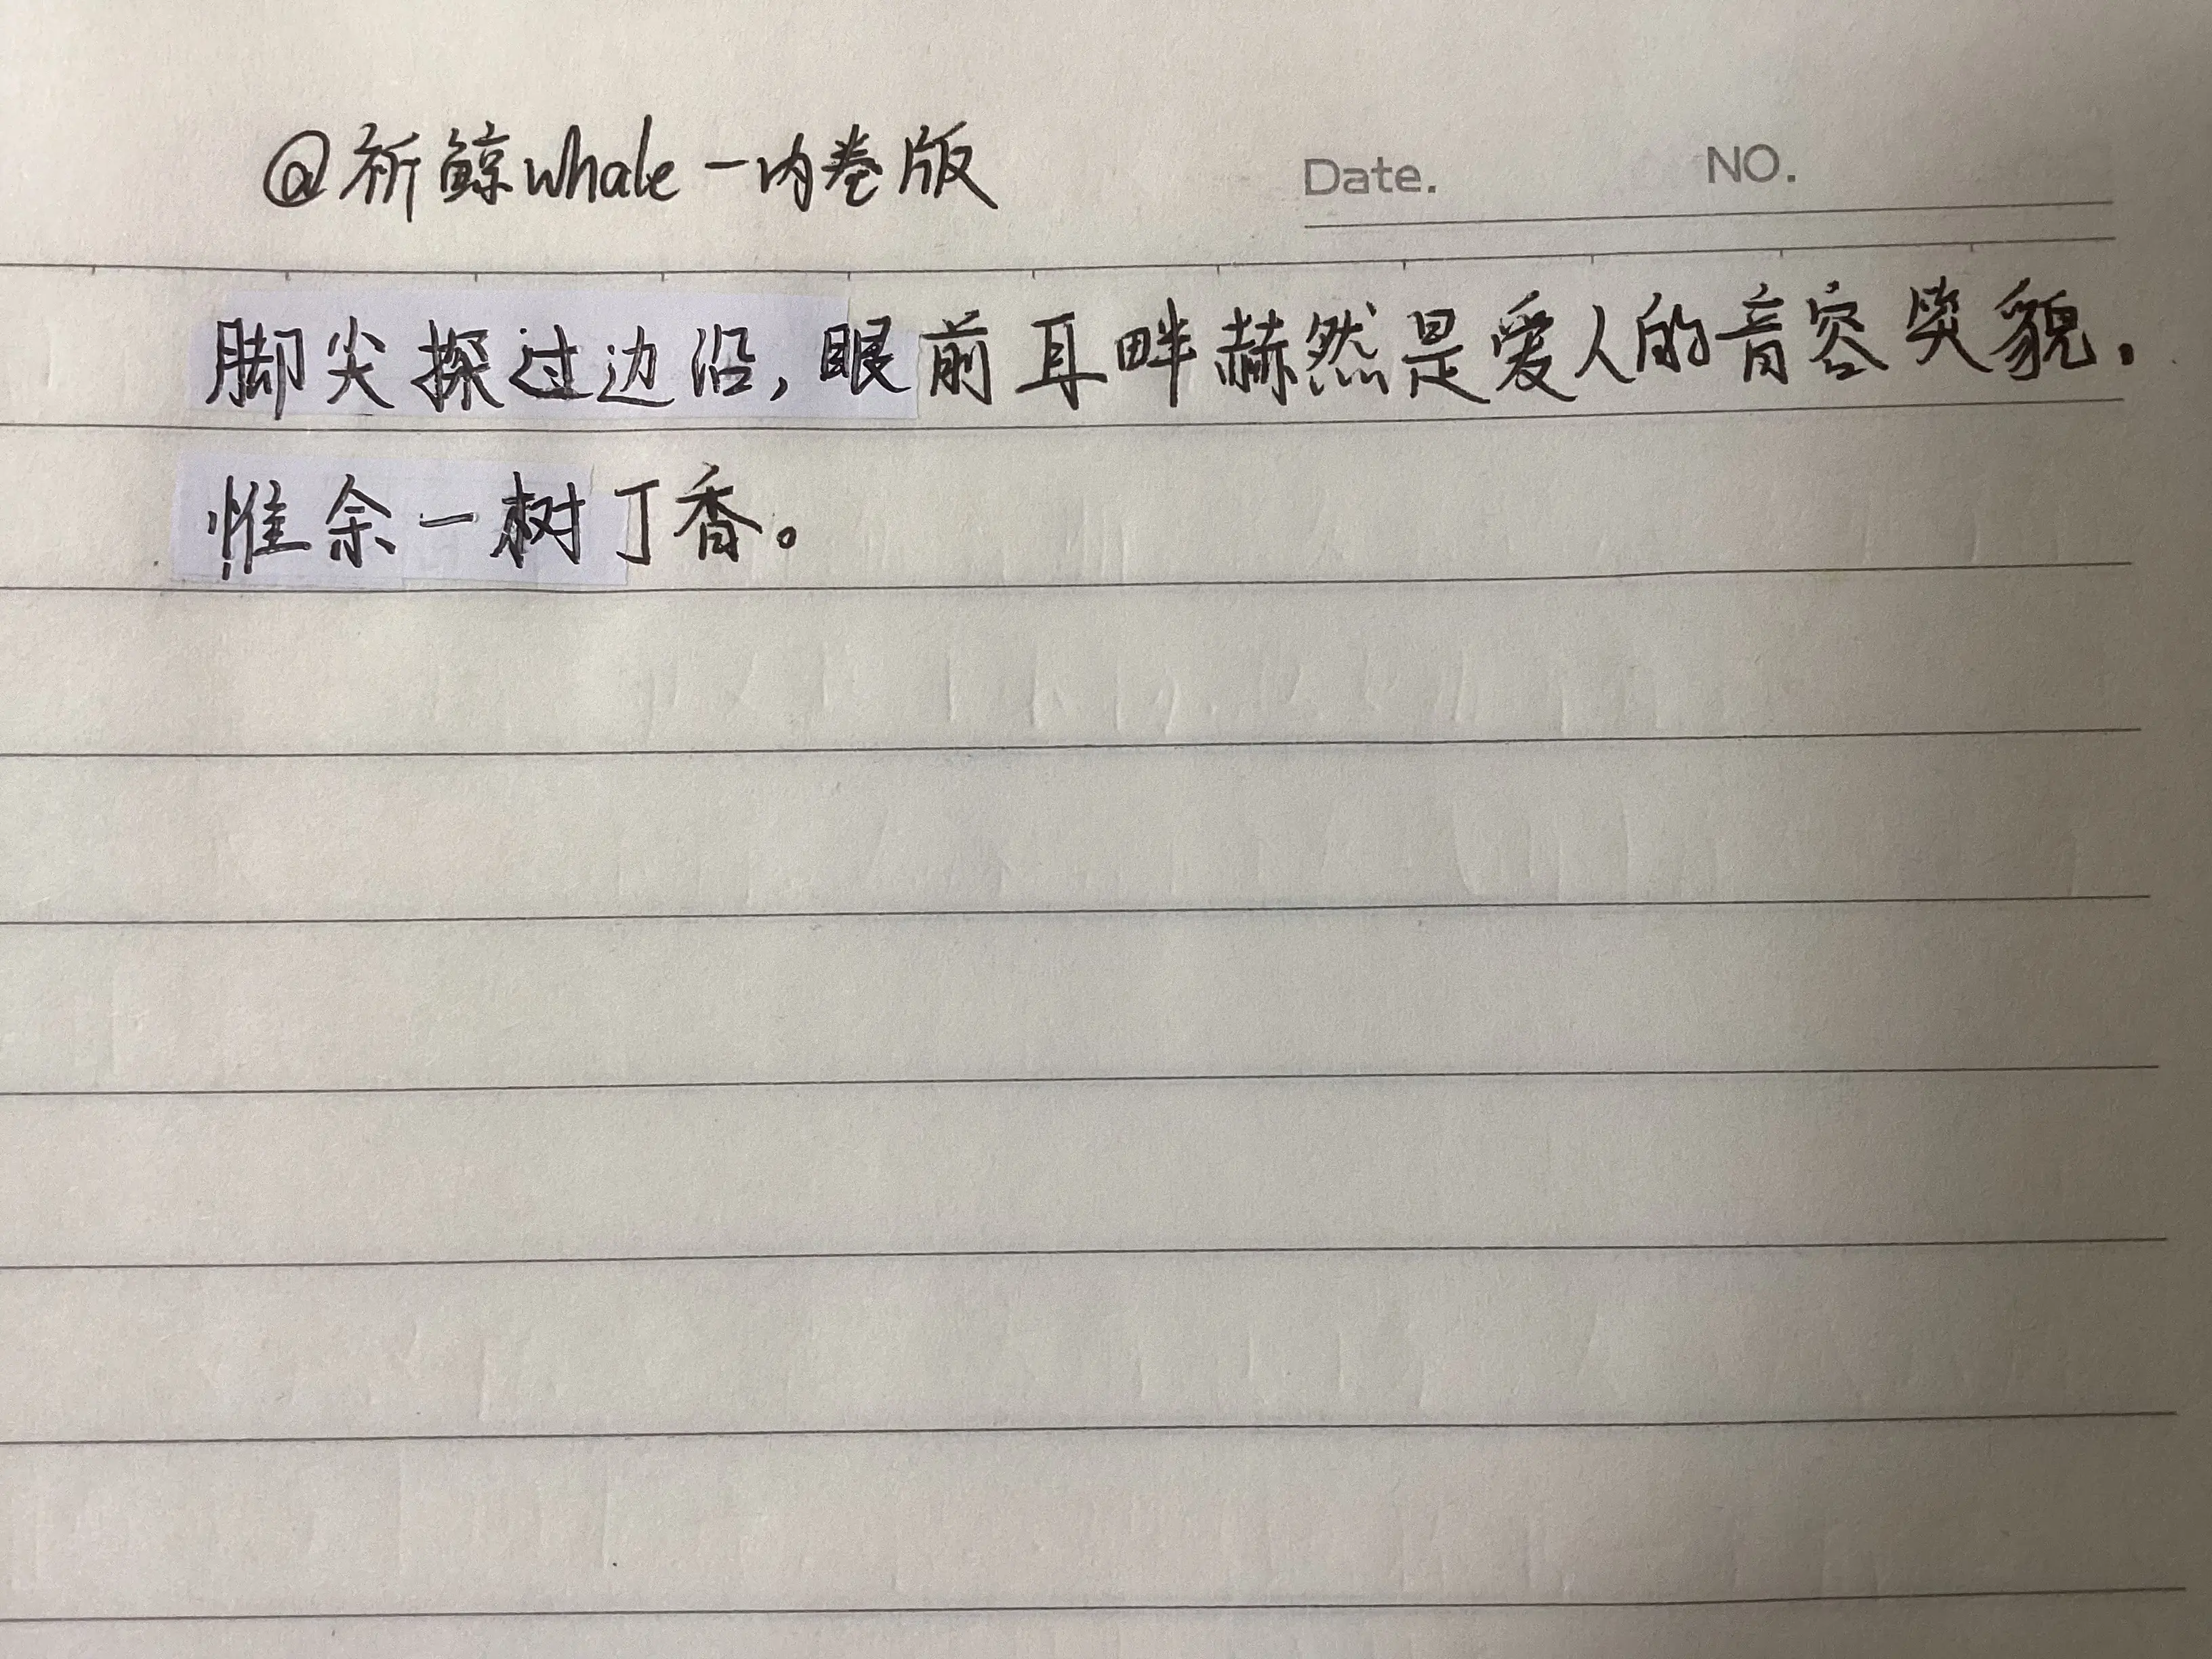 @祈鲸whale一内卷版
Date. NO.
脚尖探过边沿,眼前耳畔赫然是爱人的音容笑貌,
惟余一树丁香。